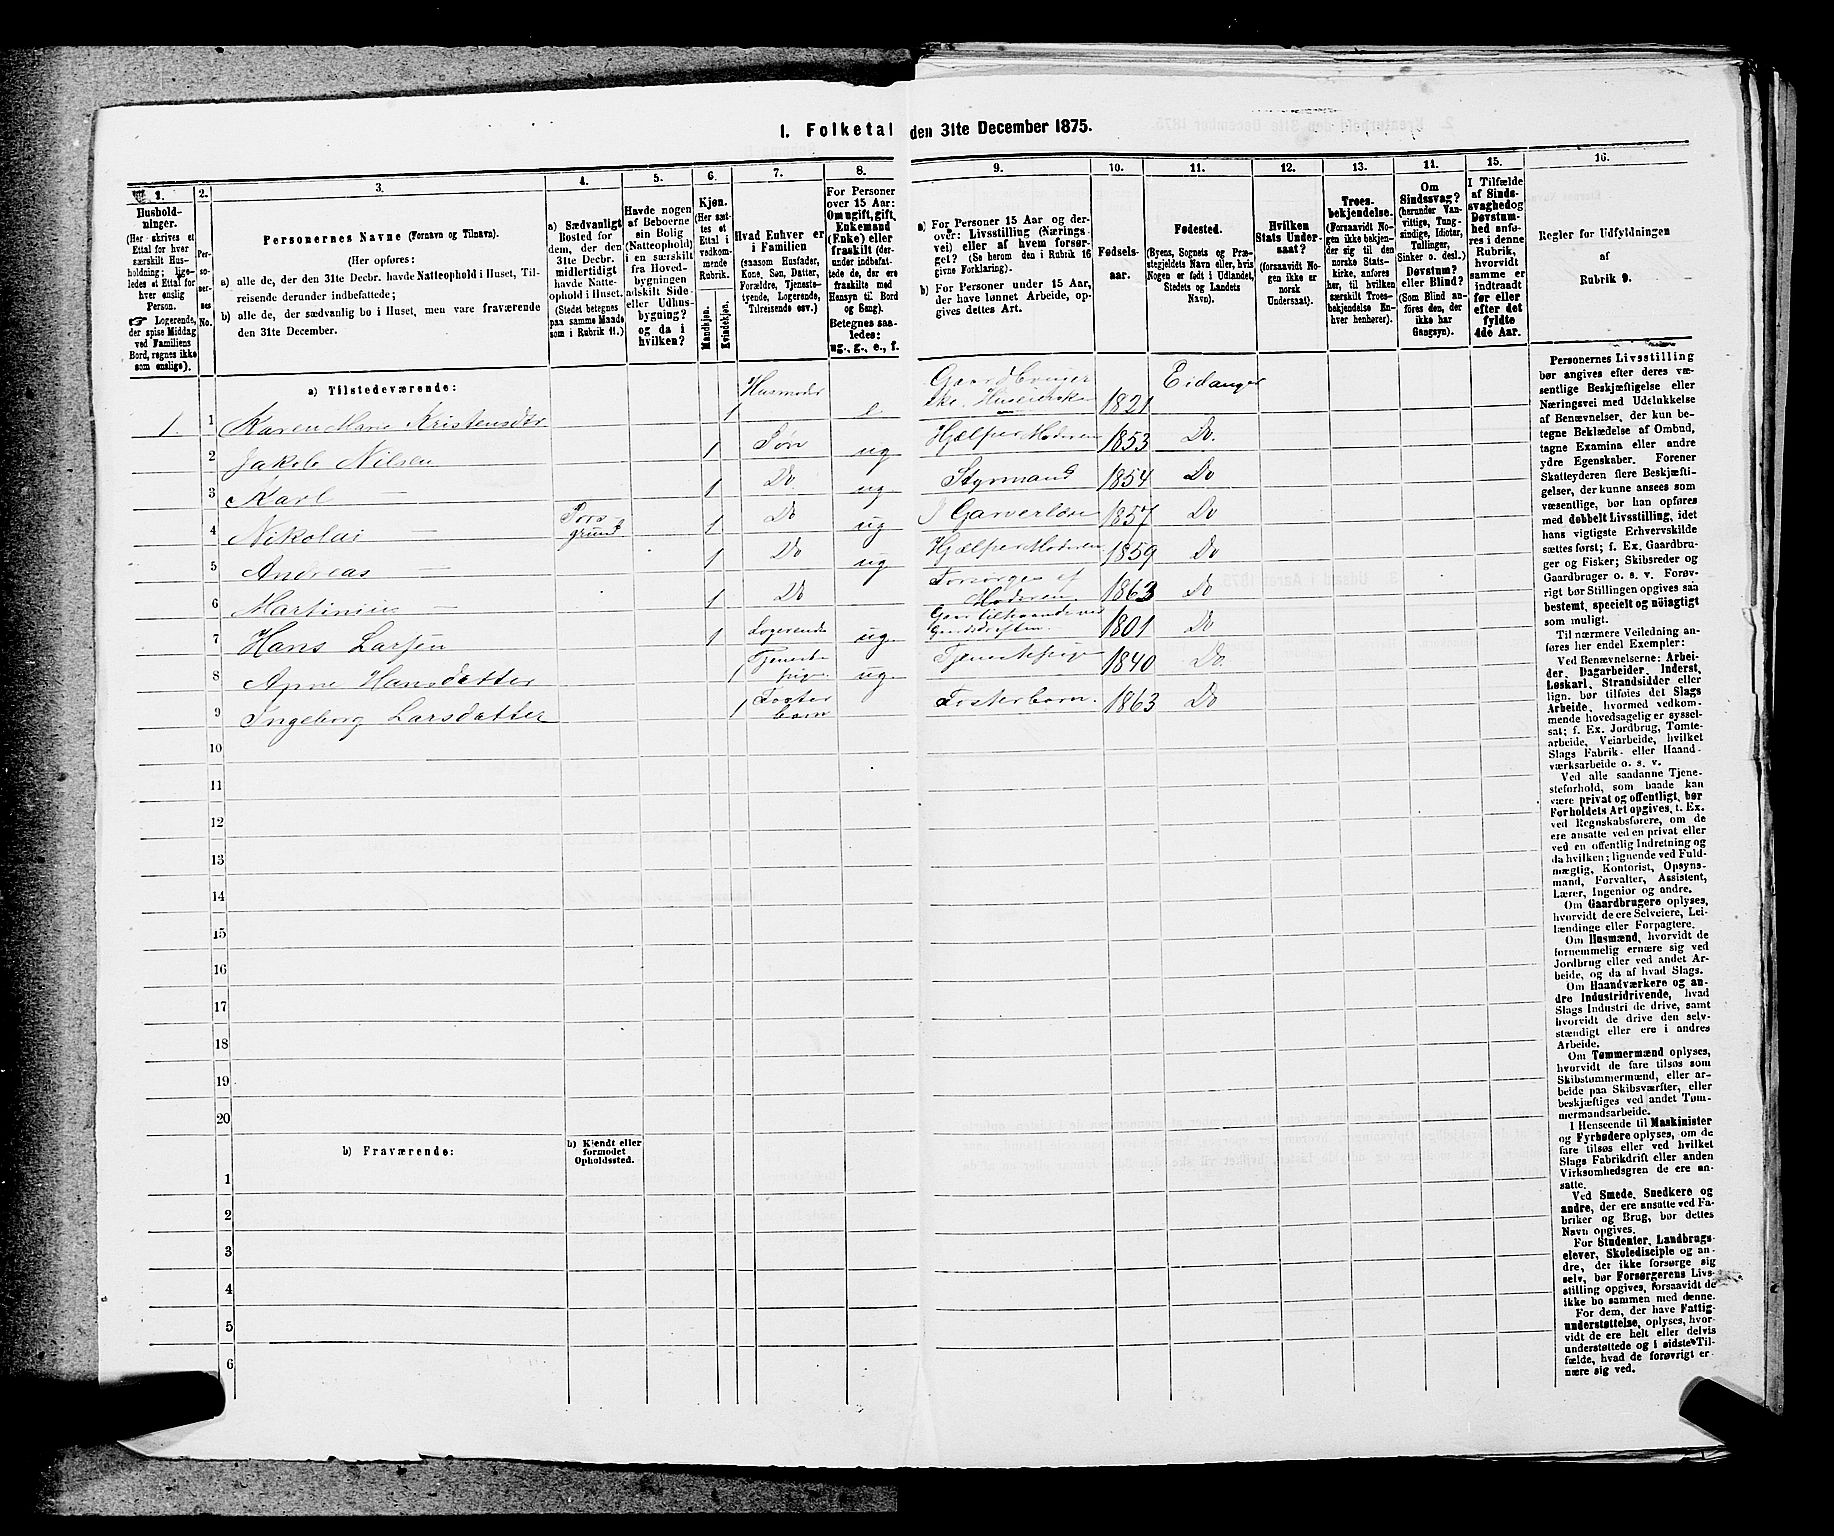 I. Folketal den 31te December 1875.
1.
Husholdninger.
(Her skrives et
Ettal for hver
særskilt Husholdning;
ligeledes et Ettal for
hver enslig
Person.
☞ Logerende,
der spise Middag
ved Familiens
Bord, regnes ikke
som enslige).
2.
Personernes
No.
3.
Personernes Navne (Fornavn og Tilnavn).
(Her opføres:
a) alle de, der den 31te Decbr. havde Natteophold i Huset, Tilreisende
derunder indbefattede;
b) alle de, der sædvanlig bo i Huset, men vare fraværende
den 31te December.
4.
a) Sædvanligt
Bosted for
dem, der den
31te Decbr.
midlertidigt
havde Natteophold
i Huset.
(Stedet betegnes
paa samme Maade
som i Rubrik 11.)
5.
Havde nogen
af Beboerne
sin Bolig
(Natteophold)
i en særskilt
fra Hovedbygningen
adskilt Side-
eller Udhusbygning?
og da i
hvilken?
6.
Kjøn.
(Her sættes
et
Ettal i
vedkommende
Rubrik.
Mandkjøn.
Kvindekjøn.
7.
Hvad Enhver er
i Familien
(saasom Husfader,
Kone, Søn, Datter,
Forældre, Tjenestetyende,
Logerende,
Tilreisende osv.)
8.
For Personer
over 15 Aar:
Om ugift, gift,
Enkemand
(Enke) eller
fraskilt (derunder
indbefattede
de, der ere
fraskilte med
Hensyn til Bord
og Seng).
Betegnes saaledes:
ug., g., e., f.
9.
a) For Personer 15 Aar og derover:
Livsstilling (Næringsvei)
eller af hvem forsørget?
(Se herom den i Rubrik 16
givne Forklaring).
b) For Personer under 15 Aar,
der have lønnet Arbeide, opgives
dettes Art.
10.
Fødselsaar.
11.
Fødested.
(Byens, Sognets og Præstegjeldets
Navn eller, hvis
Nogen er født i Udlandet,
Stedets og Landets
Navn).
12.
Hvilken
Stats Undersaat?
(forsaavidt Nogen
ikke er
norsk
Undersaat).
13.
Troesbekjendelse.
(Forsaavidt Nogen
ikke bekjender
sig til den
norske Statskirke,
anføres
her, til hvilken
særskilt Troesbekjendelse
Enhver
henhører).
14.
Om
Sindssvag?
(herunder Vanvittige,
Tungsindige,
Idioter,
Tullinger,
Sinker o. desl.)
Døvstum?
eller Blind?
(Som Blind anføres
den, der
ikke har
Gangsyn).
15.
I Tilfælde
af Sindssvaghed
og
Døvstumhed
anføres
i denne
Rubrik,
hvorvidt
samme er
indtraadt
før eller
efter det
fyldte
4de Aar.
16.
Regler for Udfyldningen
af
Rubrik 9.
a) Tilstedeværende:
1 1 Karen Marie Kristensdtr 1 Husmoder e Gaardbruger ske Huseierske 1821 Eidanger
2 Jakob Nilsen 1 Søn ug Hjælper Moderen 1853 Do.
3 Karl — 1 Do ug Styrmand 1854 Do
4 Nikolai — Pors-grund 1 Do ug I Garverlære 1857 Do
5 Andreas — 1 Do ug Hjælper Moderen 1859 Do
6 Martinius — 1 Do Forsørges af Moderen 1863 Do
7 Hans Larsen 1 Logerende ug. Gaar tilhaande ved Gaardsdriften. 1801 Do
8 Anne Hansdatter 1 Tjenestepige ug. Tjenestepige 1840 Do.
9 Ingeborg Larsdatter 1 Fosterbarn Fosterbarn. 1863 Do
10
11
12
13
14
15
16
17
18
19
20
b) Fraværende:
b) Kjendt eller
formodet
Opholdssted.
1
2
3
4
5
6
Personernes Livsstilling
bør angives efter deres væsentlige
Beskjæftigelse eller
Næringsvei med Udelukkelse
af Benævnelser, der kun betegne
Beklædelse af Ombud,
tagne Examina eller andre
ydre Egenskaber. Forener
Skatteyderen flere Beskjæftigelser,
der kunne ansees som
væsentlige, bør han opføres
med dobbelt Livsstilling, idet
hans vigtigste Erhvervskilde
sættes først; f. Ex. Gaardbruger
og Fisker; Skibsreder og
Gaardbruger o. s. v. Forøvrigt
bør Stillingen opgives saa
bestemt, specielt og nøiagtigt
som muligt.
Til nærmere Veiledning anføres
her endel Exempler:
Ved Benævnelserne: Arbeider,
Dagarbeider, Inderst,
Løskarl, Strandsidder eller
lign. bør tilføies det Slags
Arbeide, hvormed vedkommende
hovedsagelig er sysselsat;
f. Ex. Jordbrug, Tomtearbeide,
Veiarbeide, hvilket
Slags Fabrik- eller Haandværksarbeide
o. s. v.
Ved alle saadanne Tjenesteforhold,
som baade kan
være privat og offentligt, bør
Forholdets Art opgives, t. Ex.
ved Regnskabsførere, om de
ere ansatte ved en privat eller
ved en offentlig Indretning og
da hvilken; lignende ved Fuldmægtig,
Kontorist, Opsynsmand,
Forvalter, Assistent,
Lærer, Ingeniør og andre.
Om Gaardbrugere oplyses,
hvorvidt de ere Selveiere, Leilændinge
eller Forpagtere.
Om Husmænd, hvorvidt de
fornemmelig ernære sig ved
Jordbrug eller ved andet Arbeide,
og da af hvad Slags.
Om Haandværkere og andre
Industridrivende, hvad
Slags Industri de drive, samt
hvorvidt de drive den selvstændigt
eller ere i andres
Arbeide.
Om Tømmermænd oplyses,
hvorvidt de fare tilsøs som
Skibstømmermænd, eller arbeide
paa Skibsværfter, eller
beskjæftiges ved andet Tømmermandsarbeide.
I Henseende til Maskinister
og Fyrbødere oplyses, om de
fare tilsøs eller ved hvilket
Slags Fabrikdrift eller anden
Virksomhedsgren de ere ansatte.
Ved Smede, Snedkere og
andre, der ere ansatte ved Fabriker
og Brug, bør dettes
Navn opgives.
For Studenter, Landbrugselever,
Skoledisciple og andre,
der ikke forsørge sig
selv, bør Forsørgerens Livsstilling
opgives, forsaavidt de
ikke bo sammen med denne.
For dem, der have Fattigunderstøttelse,
oplyses, hvorvidt
de ere helt eller delvis
understøttede og i sidste Tilfælde,
hvad de forøvrigt ernære
sig ved.